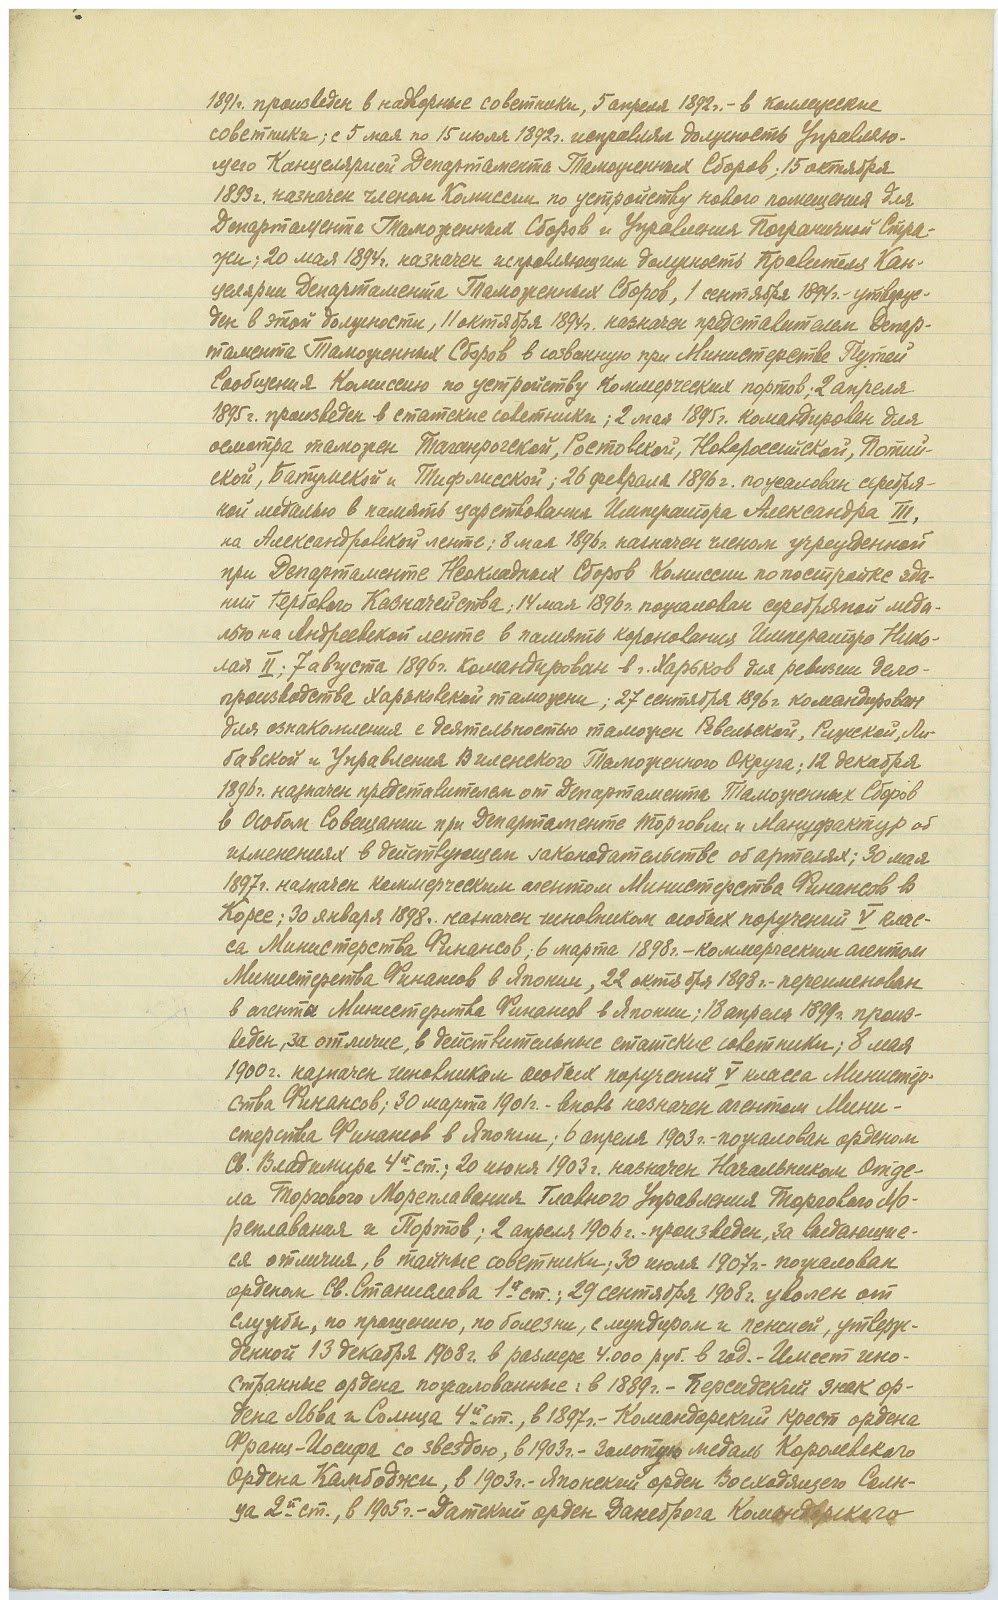 1891г. произведен в надворные советники, 5 апреля 1892г.- в коллежские
советники; с 5 мая по 15 июля 1892г. исправлял должность Управляю-
щего Канцелярией Департамента Таможенных Сборов; 15 октября
1893г. назначен членом Комиссии по устройству нового помещения для
Департамента Таможенных Сборов и Управления Пограничной Стра-
жи; 20 мая 1894г. назначен исправляющим должность Правителя Кан-
целярии Департамента Таможенных Сборов, 1 сентября 1894г.- утверж-
ден в этой должности, 11 октября 1894г. назначен представителем Депар-
тамента Таможенных Сборов в созванную при Министерстве Путей
Сообщения Комиссию по устройству коммерческих портов; 2 апреля
1895г. произведен в статские советники; 2 мая 1895г. командирован для
осмотра таможен Таганрогской, Ростовской, Новороссийской, Потий-
ской, Батумской и Тифлисской; 26 февраля 1896г. пожалован серебря-
ной медалью в память царствования Императора Александра III,
на Александровской ленте; 8 мая 1896г. назначен членом учрежденной
при Департаменте Неокладных Сборов Комиссии по постройке зда-
ний Гербового Казначейства; 14 мая 1896г. пожалован серебряной меда-
лью на Андреевской ленте в память коронования Императора Нико-
лая II; 7 августа 1896г. командирован в г. Харьков для ревизии дело-
производства Харьковской таможни; 27 сентября 1896г. командирован
для ознакомления с деятельностью таможен Ревельской, Рижской, Ли-
бавской и Управления Виленского Таможенного Округа; 12 декабря
1896г. назначен представителем от Департамента Таможенных Сборов
в Особом Совещании при Департаменте Торговли и Мануфактур об
изменениях в действующем законодательстве об артелях; 30 мая
1897г. назначен коммерческим агентом Министерства Финансов в
Корее; 30 января 1898г. назначен чиновником особых поручений V клас-
са Министерства Финансов; 6 марта 1898г.- коммерческим агентом
Министерства Финансов в Японии, 22 октября 1898г.- переименован
в агенты Министерства Финансов в Японии; 18 апреля 1899г. произ-
веден, за отличие, в действительные статские советники; 8 мая
1900г. назначен чиновником особых поручений V класса Министер-
ства Финансов; 30 марта 1901г.- вновь назначен агентом Мини-
стерства Финансов в Японии; 6 апреля 1903г.- пожалован орденом
Св. Владимира 4й ст.; 20 июня 1903г. назначен Начальником Отде-
ла Торгового Мореплавания Главного Управления Торгового Мо-
реплавания и Портов; 2 апреля 1906г.- произведен, за выдающие-
ся отличия, в тайные советники; 30 июля 1907г.- пожалован
орденом Св. Станислава 1й ст.; 29 сентября 1908г. уволен от
службы, по прошению, по болезни, с мундиром и пенсией, утверж-
денной 13 декабря 1908г. в размере 4.000 руб. в год.- Имеет ино-
странные ордена пожалованные: в 1889г.- Персидский знак ор-
дена Льва и Солнца 4й ст., в 1897г.- Командорский крест ордена
Франц-Иосифа со звездою, в 1903г.- Золотую медаль Королевского
Ордена Камбоджи, в 1903г.- Японский орден Восходящего Солн-
ца 2й ст., в 1905г.- Датский орден Данеброга Командорского